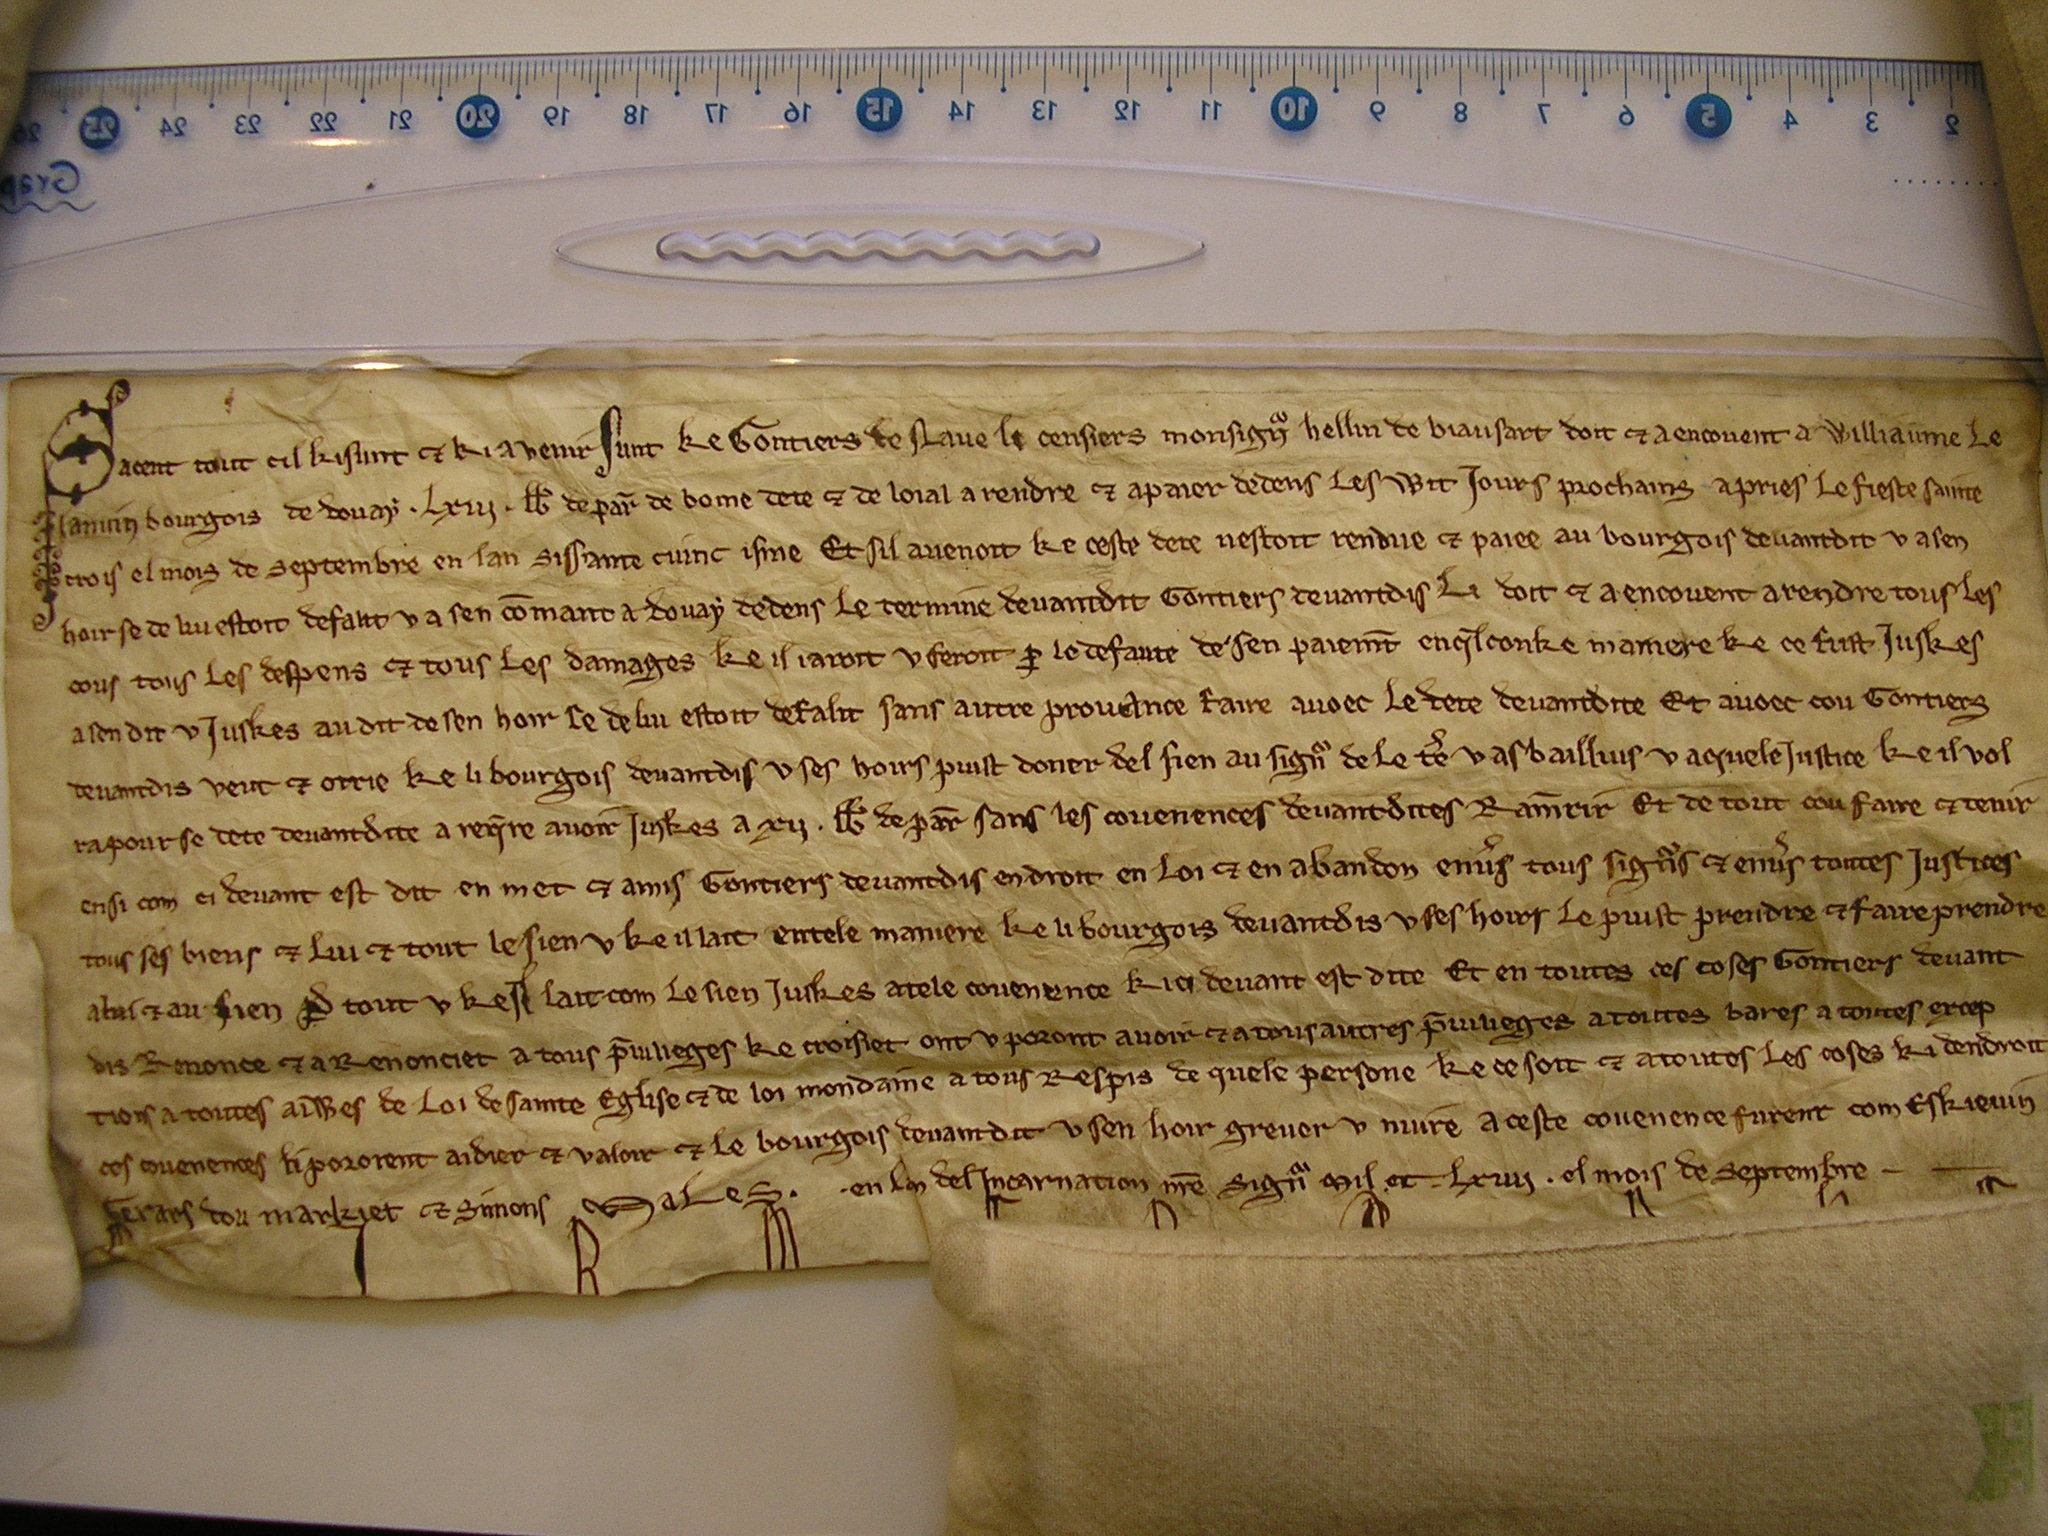 26 25 24 23 22 21 20 19 18 17 16 15 14 13 12 11 10 9 8 7 6 5 4 3 2
Grap
Sacent tout cil ki sunt & ki avenir sunt ke Gontiers de le censiers monsign̄ hellin de biausart doit & a encovent a Williaume Le
bourgois de douay . Lxiij . lb̄ de par̄ de bone dete & de loial a rendre & a paier dedens Les wit Jours prochains apries Le fieste sainte
crois el mois de septembre en lan sissante cuinc isme Et sil avenoit ke ceste dete nestoit rendue & paiee au bourgois devantdit v a sen
hoir se de lui estoit defalit v a sen cōmant a douay dedens Le termine devantdit Gontiers devantdis Li doit & a encovent a rendre tous les
cous tous Les despens & tous Les damages ke il iaroit v feroit p̱ le defaute de sen paiemt̄ en q̄lconke maniere ke ce fust Juskes
a sen dit v Juskes au dit de sen hoir se de lui estoit defalit sans autre provance faire avoec Le dete devantdite Et avoec cou Gontiers
devantdis veut & otrie ke li bourgois devantdis v ses hoirs puist doner del sien au sign̄ de Le t̄re v as baillius v a quele Justice ke il vol
ra pour se dete devantdite a req̄re avoir Juskes a xij . lb̄ de par̄ sans les covenences devantdites Ramenrir Et de tout cou faire & tenir
ensi com ci devant est dit en met & a mis Gontiers devantdis en droit en Loi & en abandon env̄s tous sign̄s & env̄s toutes Justices
tous ses biens & Lui & tout le sien v ke il lait en tele maniere ke li bourgois devantdis v ses hoirs Le puist prendre & faire prendre
a lui & au sien p̱ tout v ke il lait com Le sien Juskes a tele covenence ki ci devant est dite Et en toutes ces coses Gontiers devant
dis Renonce & a Renonciet a tous p̄vileges ke croisiet ont v poront avoir & a tous autres p̄vileges a toutes bares a toutes excep
tions a toutes aiwes de Loi de sainte Eglise & de loi mondaine a tous Respis de quele persone ke ce soit & a toutes Les coses ki dendroit
ces covenences li pororent aidier & valoir & Le bourgois devantdit v sen hoir grever v nuire A ceste covenence furent com Eskievin
Gerars dou markiet & Simons MaLeS . en lan del Incarnation nr̄e Sign̄ Mil cc . Lxiiij . el mois de septembre –